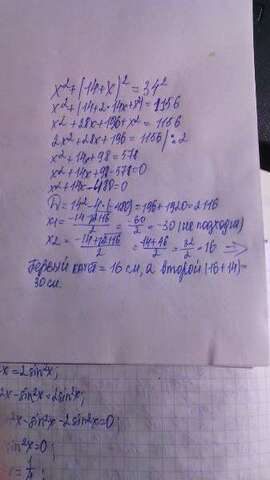 x²+(14+x)²=34²
x²+(14+2·14x+x²)=1156
x²+28x+196+x²=1156
2x²+28x+196=1156/:2
x²+14x+98=578
x²+14x+98-578=0
x²+14x-480=0
D=14²-4·(-480)=196+1920=2116
x1=(-14-√2116)/2=-60/2=-30 (не подходит)
x2=(-14+√2116)/2=(-14+46)/2=32/2=16
Первый катет=16 см, а второй (16+14)=
30см.
x=2sin²x;
2x-sin²x=2sin²x;
²x-sin²x-2sin²x=0;
sin²x=0;